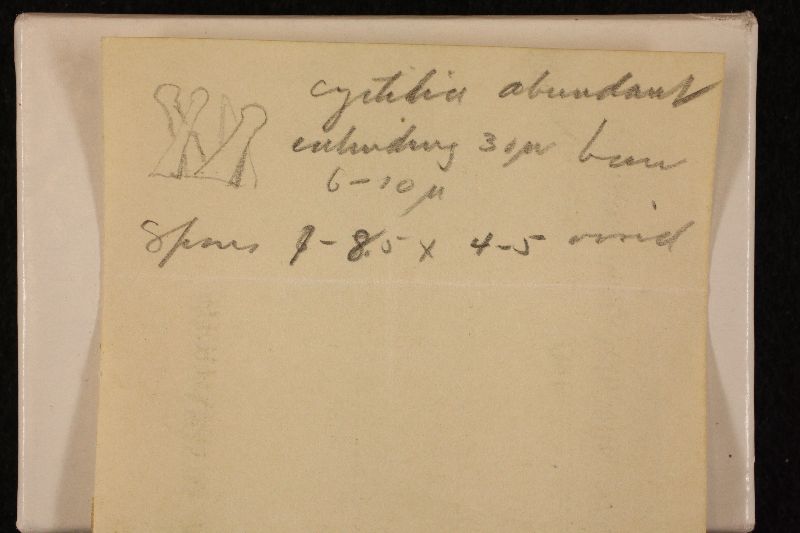 cystidia abundant
extending 30µ
6-10µ
Spores 7-8.5 x 4-5 ovoid